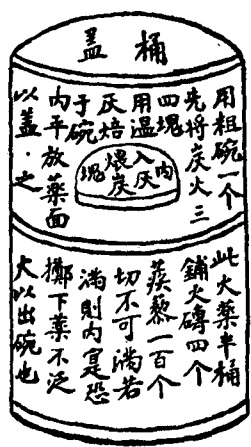 桶盖
用粗碗一个
先将炭火三
四塊
用温
灰焙
于碗
内平放薬面
以盖之
内
入灰
煨炭
塊
此火薬半桶
鋪火磚四个
蒺藜一百个
切不可滿若
滿則内寔恐
擲下薬不泛
火以出碗也